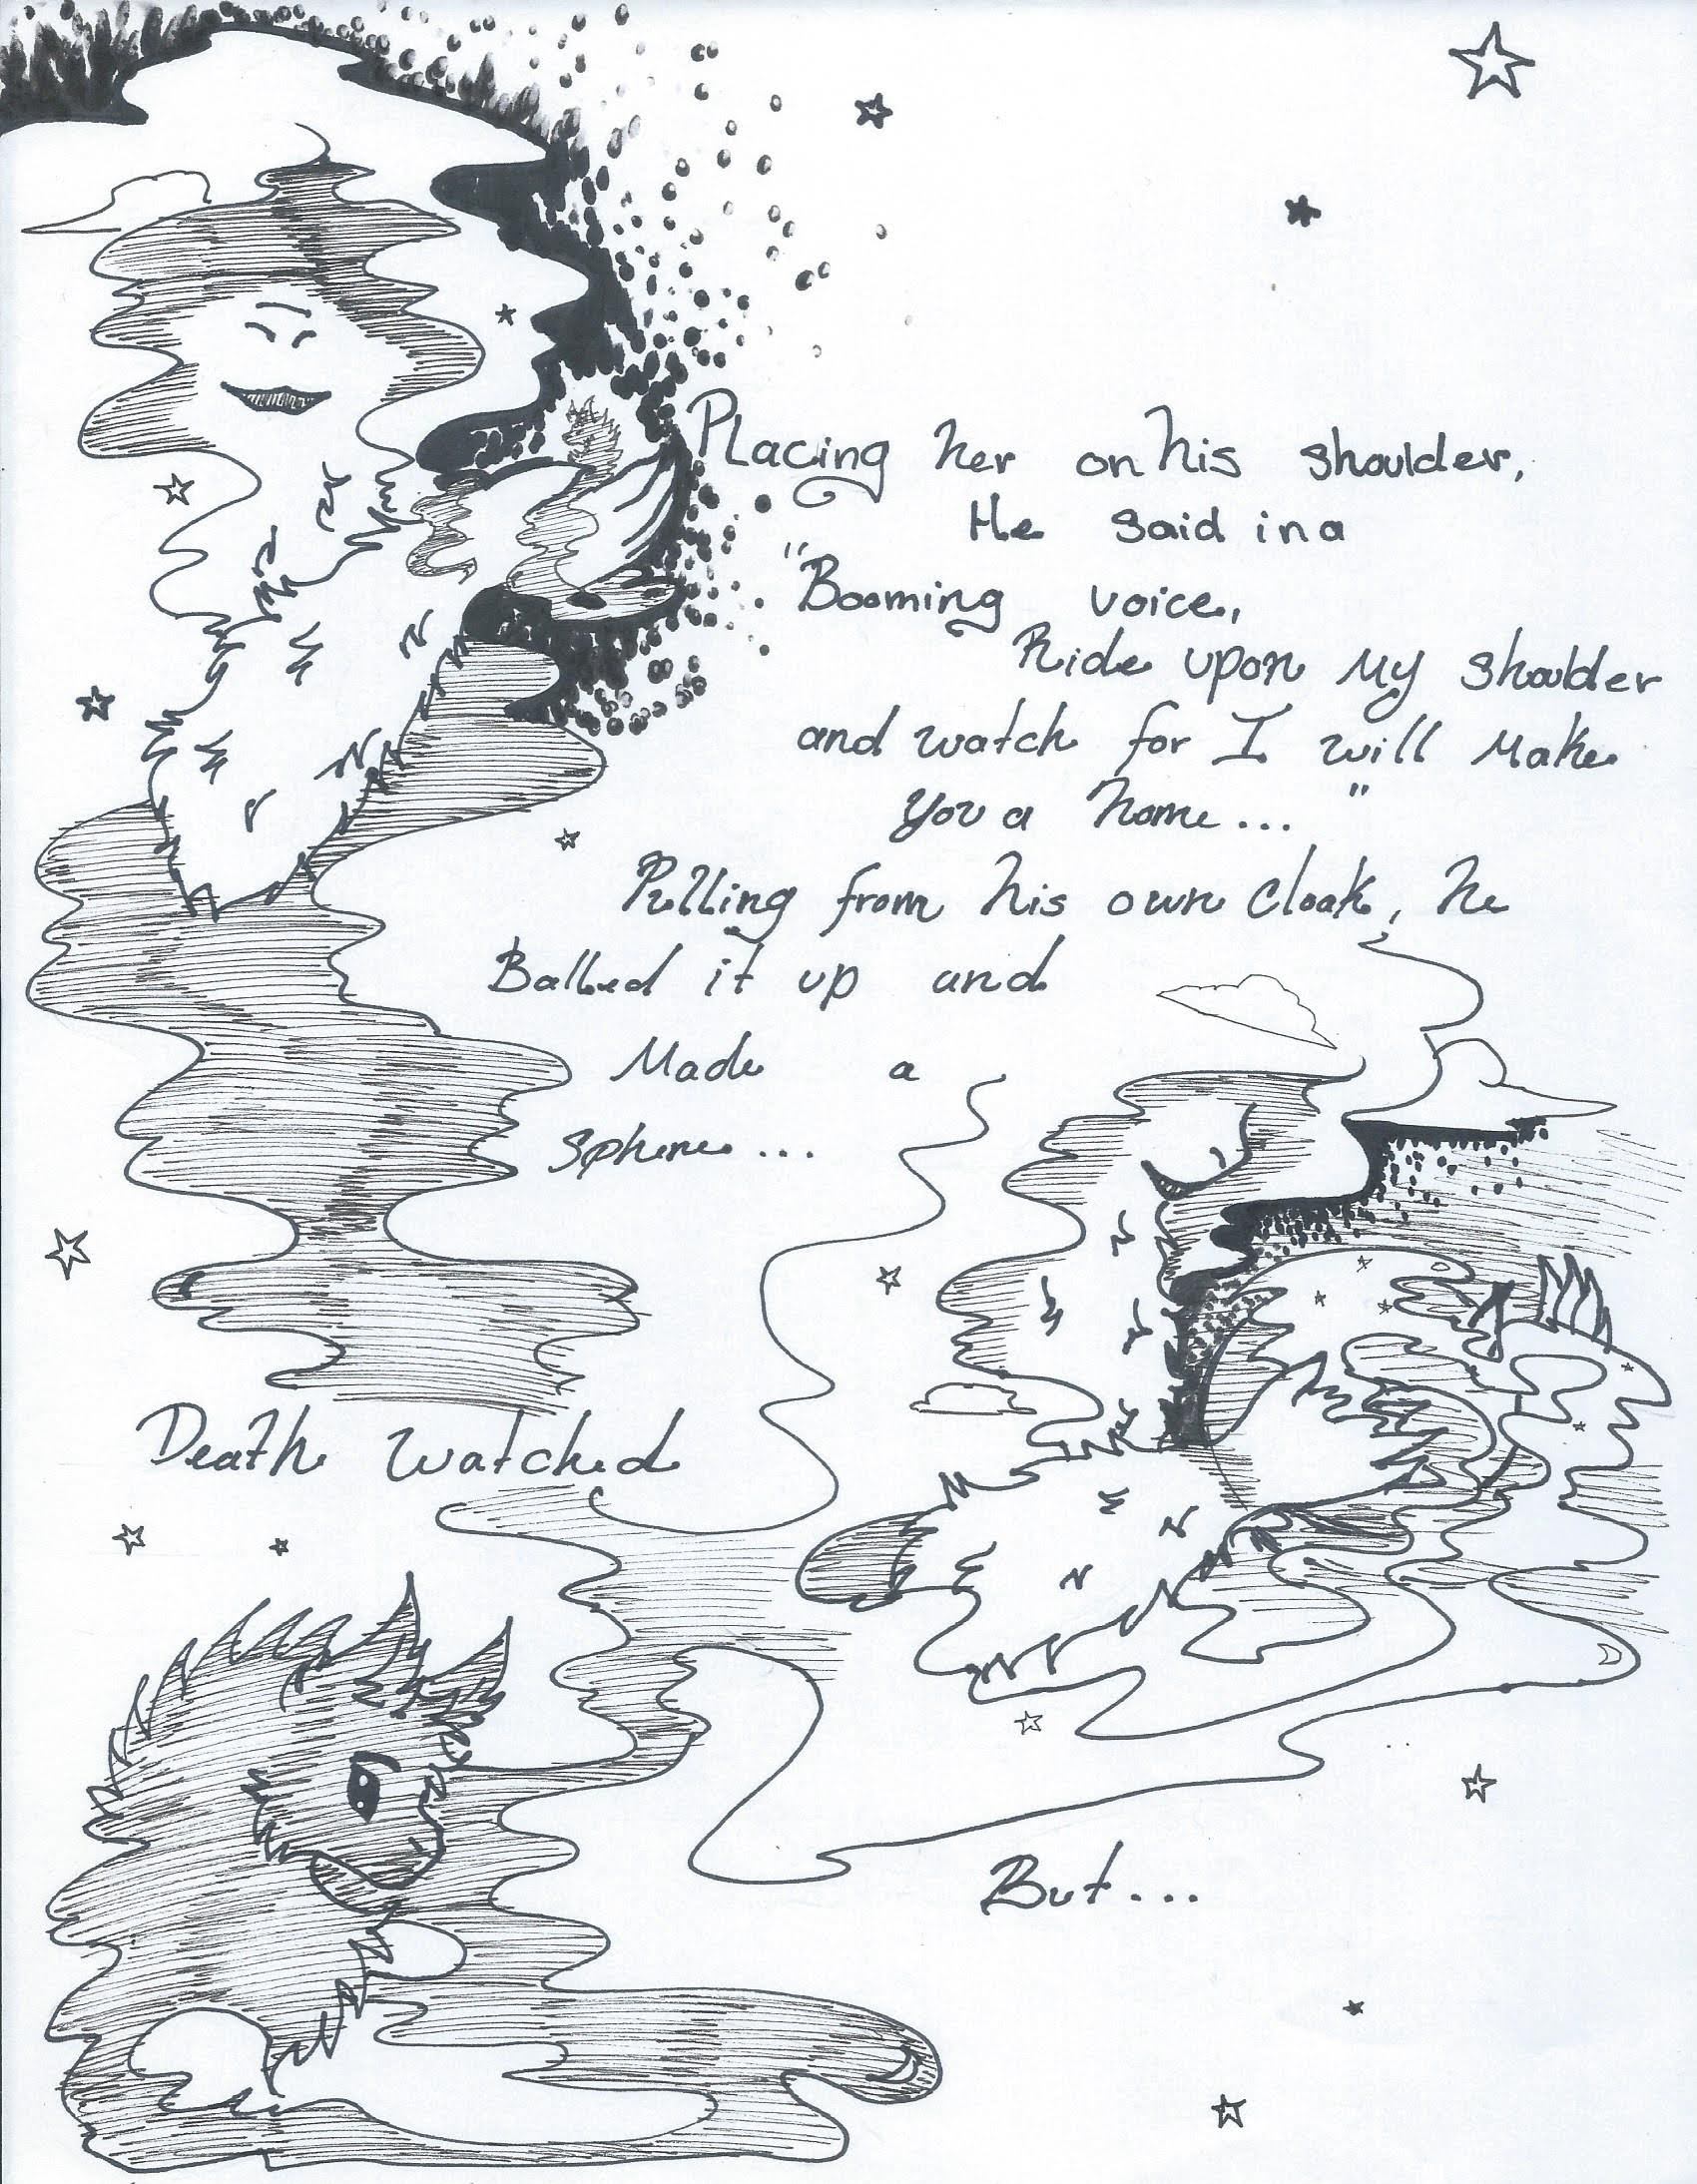 Placing her on his shoulder,
He said in a
"Booming voice,
Ride upon My shoulder
and watch for I will Make
You a home..."
Pulling from his own Cloak, he
Balled it up and
Made a
sphere...
Death watched
But...